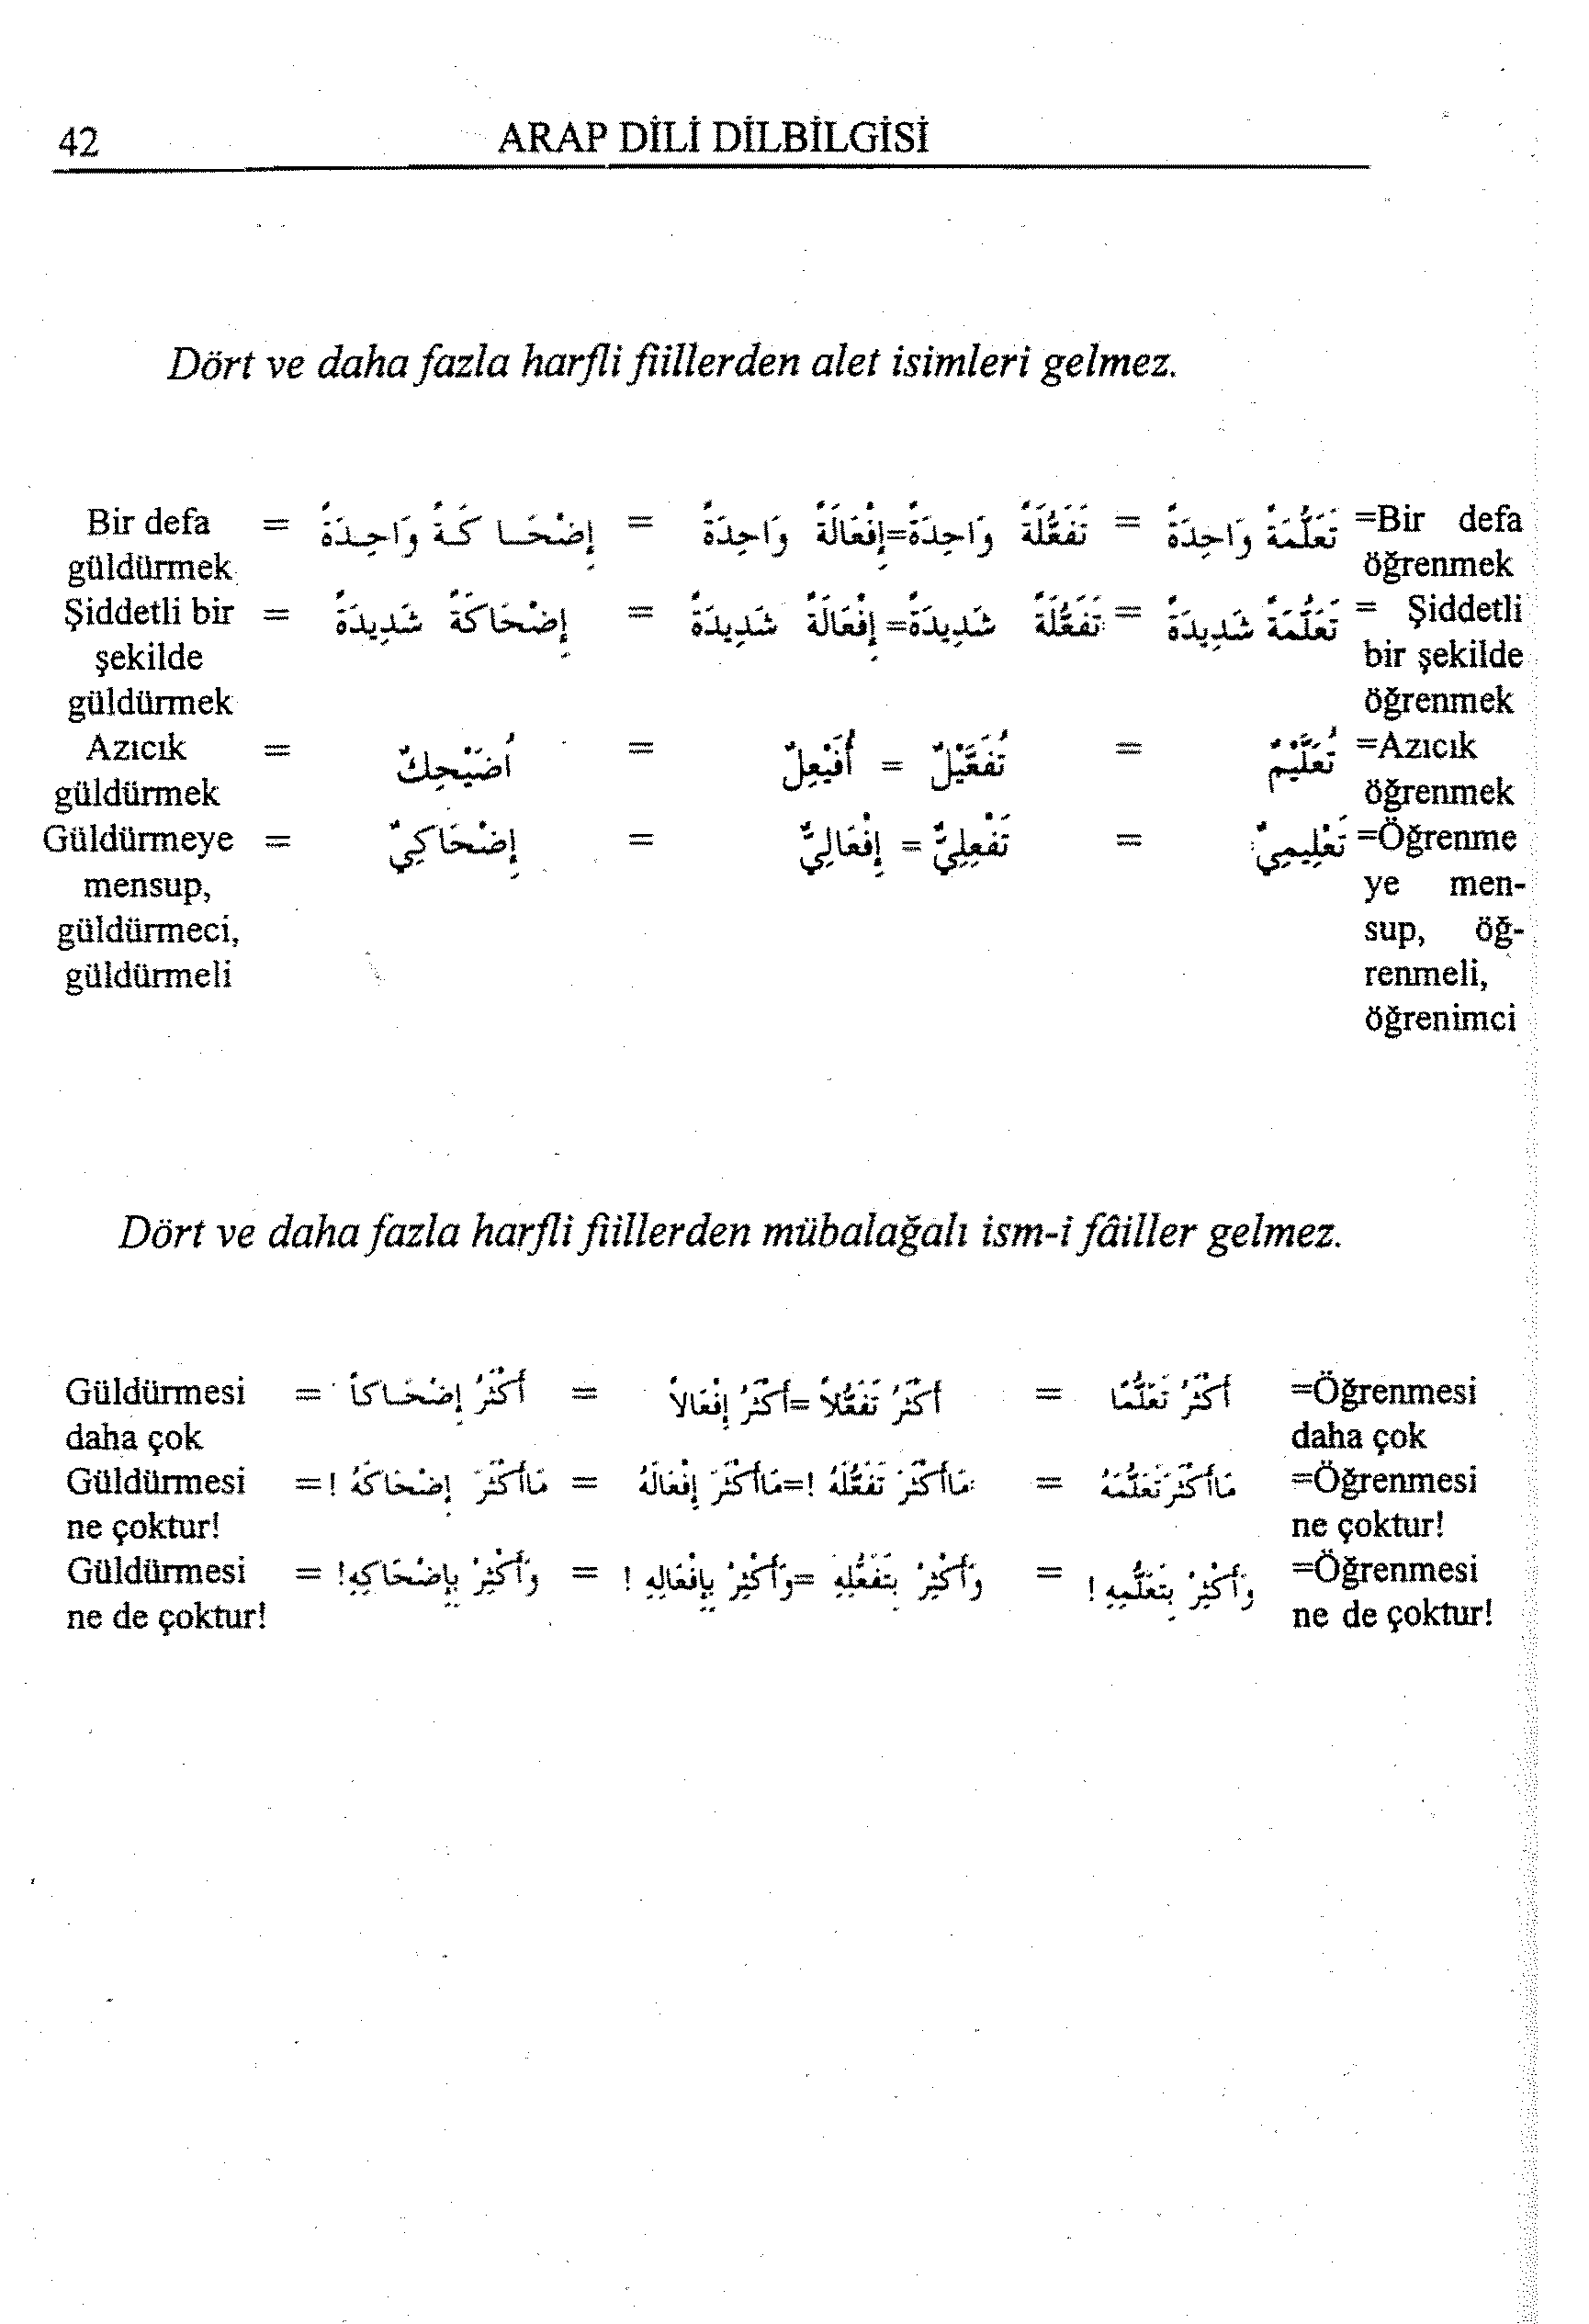 42 ARAP DİLİ DİLBİLGİSİ
Dört ve daha fazla harfli fiillerden alet isimleri gelmez.
Bir defa = إِضْحَا كَةً وَاحِدَةً = تَفَعُّلَةً وَاحِدَةً=إِفْعَالَةً وَاحِدَةً = تَعَلُّمَةً وَاحِدَةً =Bir defa
güldürmek öğrenmek
Şiddetli bir = إِضْحَاكَةً شَدِيدَةً = تَفَعُّلَةً شَدِيدَةً= إِفْعَالَةً شَدِيدَةً = تَعَلُّمَةً شَدِيدَةً = Şiddetli
şekilde bir şekilde
güldürmek öğrenmek
Azıcık = اُضَيْحِكٌ = تُفَعَّيْلٌ = أُفَيْعِلٌ = تُعَلَّيْمٌ =Azıcık
güldürmek öğrenmek
Güldürmeye = إِضْحَاكِيٌّ = تَفْعِلِيٌّ = إِفْعَالِيٌّ = تَعْلِيمِيٌّ =Öğrenme
mensup, ye men-
güldürmeci, sup, öğ-
güldürmeli renmeli,
öğrenimci
Dört ve daha fazla harfli fiillerden mübalağalı ism-i fâiller gelmez.
Güldürmesi = أَكْثَرُ إِضْحَاكاً = أَكْثَرُ تَفَعُّلاً =أَكْثَرُ إِفْعَالاً = أَكْثَرُ تَعَلُّمًا =Öğrenmesi
daha çok daha çok
Güldürmesi =! مَاأَكْثَرَ إِضْحَاكَهُ = مَاأَكْثَرَ تَفَعُّلَهُ !=مَاأَكْثَرَ إِفْعَالَهُ = مَاأَكْثَرَتَعَلُّمَهُ =Öğrenmesi
ne çoktur! ne çoktur!
Güldürmesi = وَأَكْثِرْ بِإِضْحَاكِهِ! = وَأَكْثِرْ بِتَفَعُّلِهِ =وَأَكْثِرْ بِإِفْعَالِهِ ! = وَأَكْثِرْ بِتَعَلُّمِهِ ! =Öğrenmesi
ne de çoktur! ne de çoktur!